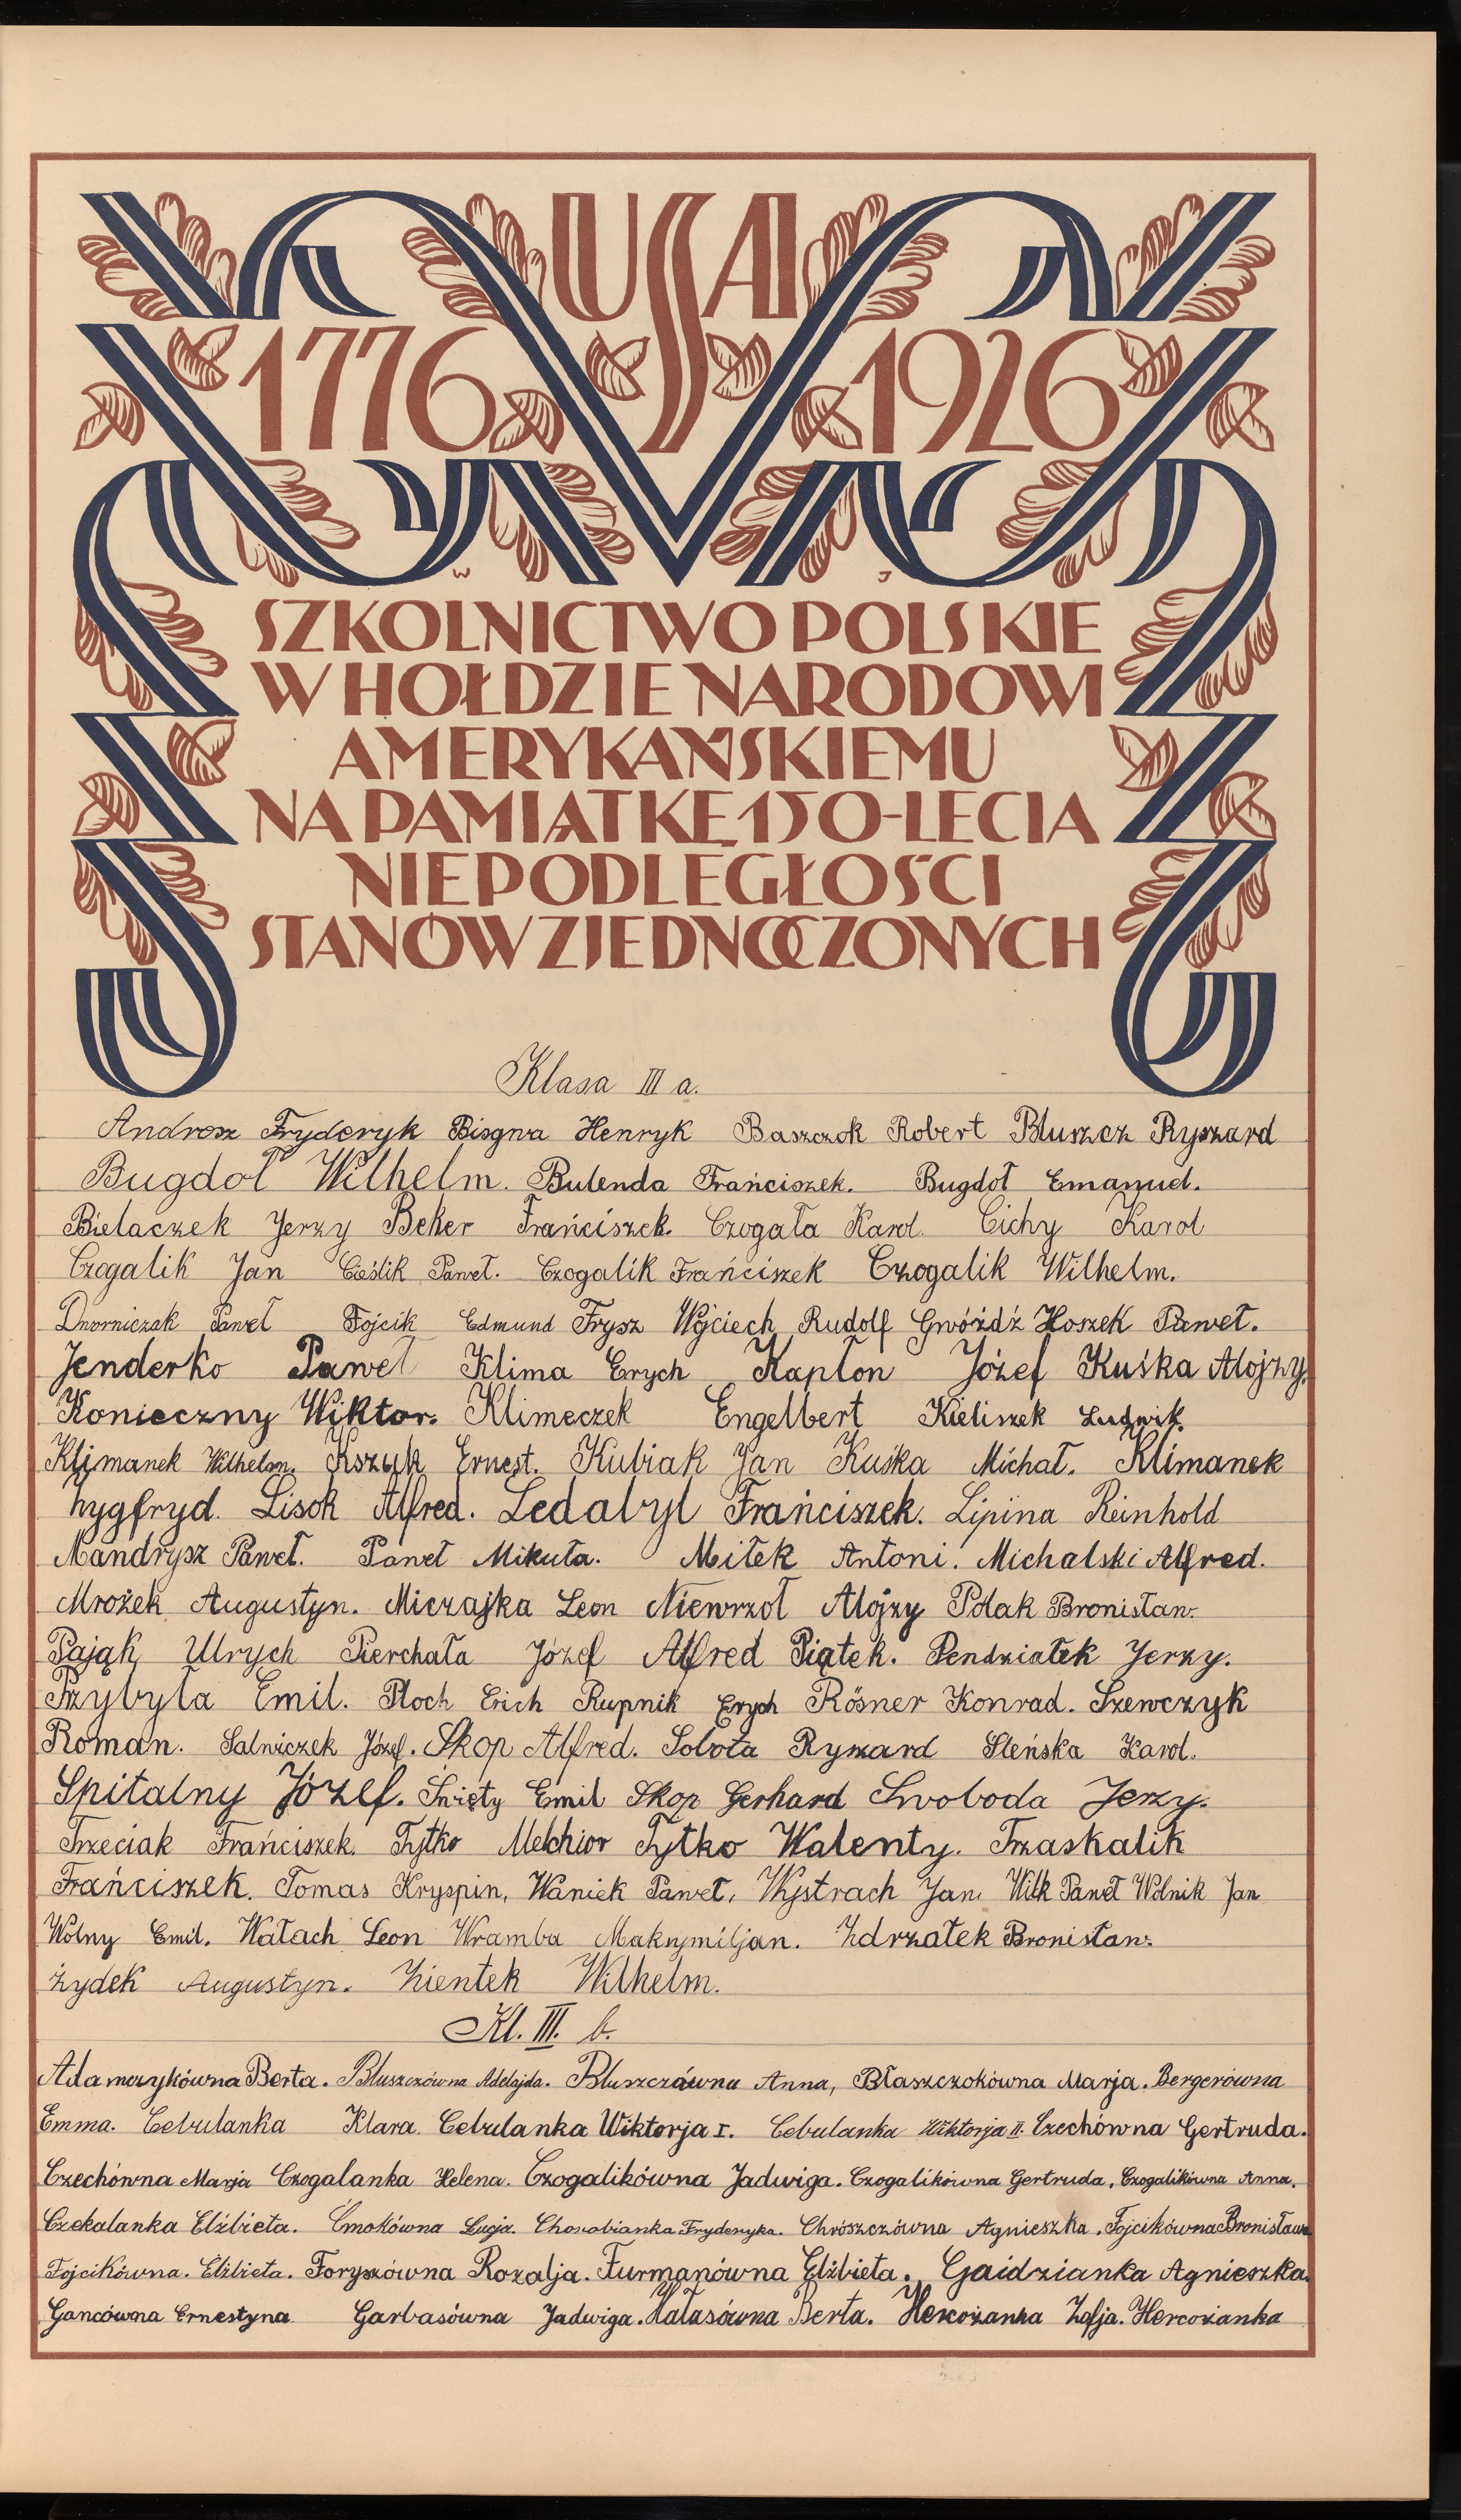 USA
1776 1926
W J
SZKOLNICTWO POLSKIE
W HOŁDZIE NARODOWI
AMERYKAŃSKIEMU
NA PAMIĄTKĘ 150-LECIA
NIEPODLEGŁOŚCI
STANÓW ZJEDNOCZONYCH
Klasa III a.
Androsz Fryderyk Bisgwa Henryk Baszczok Robert Bluszcz Ryszard
Bugdoł Wilhelm. Bulenda Frańciszek. Bugdoł Emanuel.
Bielaczek Jerzy Beker Frańciszek. Czogała Karol. Cichy Karol
Czogalik Jan Cieślik Paweł. Czogalik Frańciszek Czogalik Wilhelm.
Dworniczak Paweł Fojcik Edmund Frysz Wojciech Rudolf Gwóźdź Hoszek Paweł.
Jenderko Paweł Klima Erych Kapłon Józef Kuśka Alojzy
Konieczny Wiktor. Klimeczek Engelbert Kieliszek Ludwik.
Klimanek Wilhelm. Kszuk Ernest. Kubiak Jan Kuśka Michał. Klimanek
Zygfryd. Lisok Alfred. Ledabyl Frańciszek. Lipina Reinhold
Mandrysz Paweł. Paweł Mikuła. Miłek Antoni. Michalski Alfred.
Mrożek Augustyn. Miczajka Leon Niewrzoł Alojzy Polak Bronisław.
Pająk Ulrych Pierchała Józef Alfred Piątek. Pendziałek Jerzy.
Przybyła Emil. Ploch Erich Rupnik Erych Rösner Konrad. Szewczyk
Roman. Salniczek Józef. Skop Alfred. Sobota Ryszard Sleńska Karol.
Spitalny Józef. Święty Emil Skop Gerhard Swoboda Jerzy.
Trzeciak Frańciszek. Tytko Melchior Tytko Walenty. Trzaskalik
Frańciszek. Tomas Kryspin, Waniek Paweł, Wystrach Jan, Wilk Paweł Wolnik Jan
Wolny Emil. Wałach Leon Wramba Maksymiljan. Zdrzałek Bronisław.
Żydek Augustyn. Zientek Wilhelm.
Kl. III. b.
Adamczykówna Berta. Bluszczówna Adelajda. Bluszczówna Anna, Błaszczokówna Marja. Bergerówna
Emma. Cebulanka Klara. Cebulanka Wiktorja I. Cebulanka Wiktorja II. Czechówna Gertruda.
Czechówna Marja Czogalanka Helena. Czogalikówna Jadwiga. Czogalikówna Gertruda. Czogalikówna Anna.
Czekalanka Elżbieta. Ćmokówna Łucja. Chorobianka Fryderyka. Chrószczówna Agnieszka. Fojcikówna Bronisława
Fojcikówna. Elżbieta. Foryszówna Rozalja. Furmanówna Elżbieta. Gaidzianka Agnieszka.
Gancówna Ernestyna Garbasówna Jadwiga. Hałasówna Berta. Hercożanka Zofja. Hercożanka